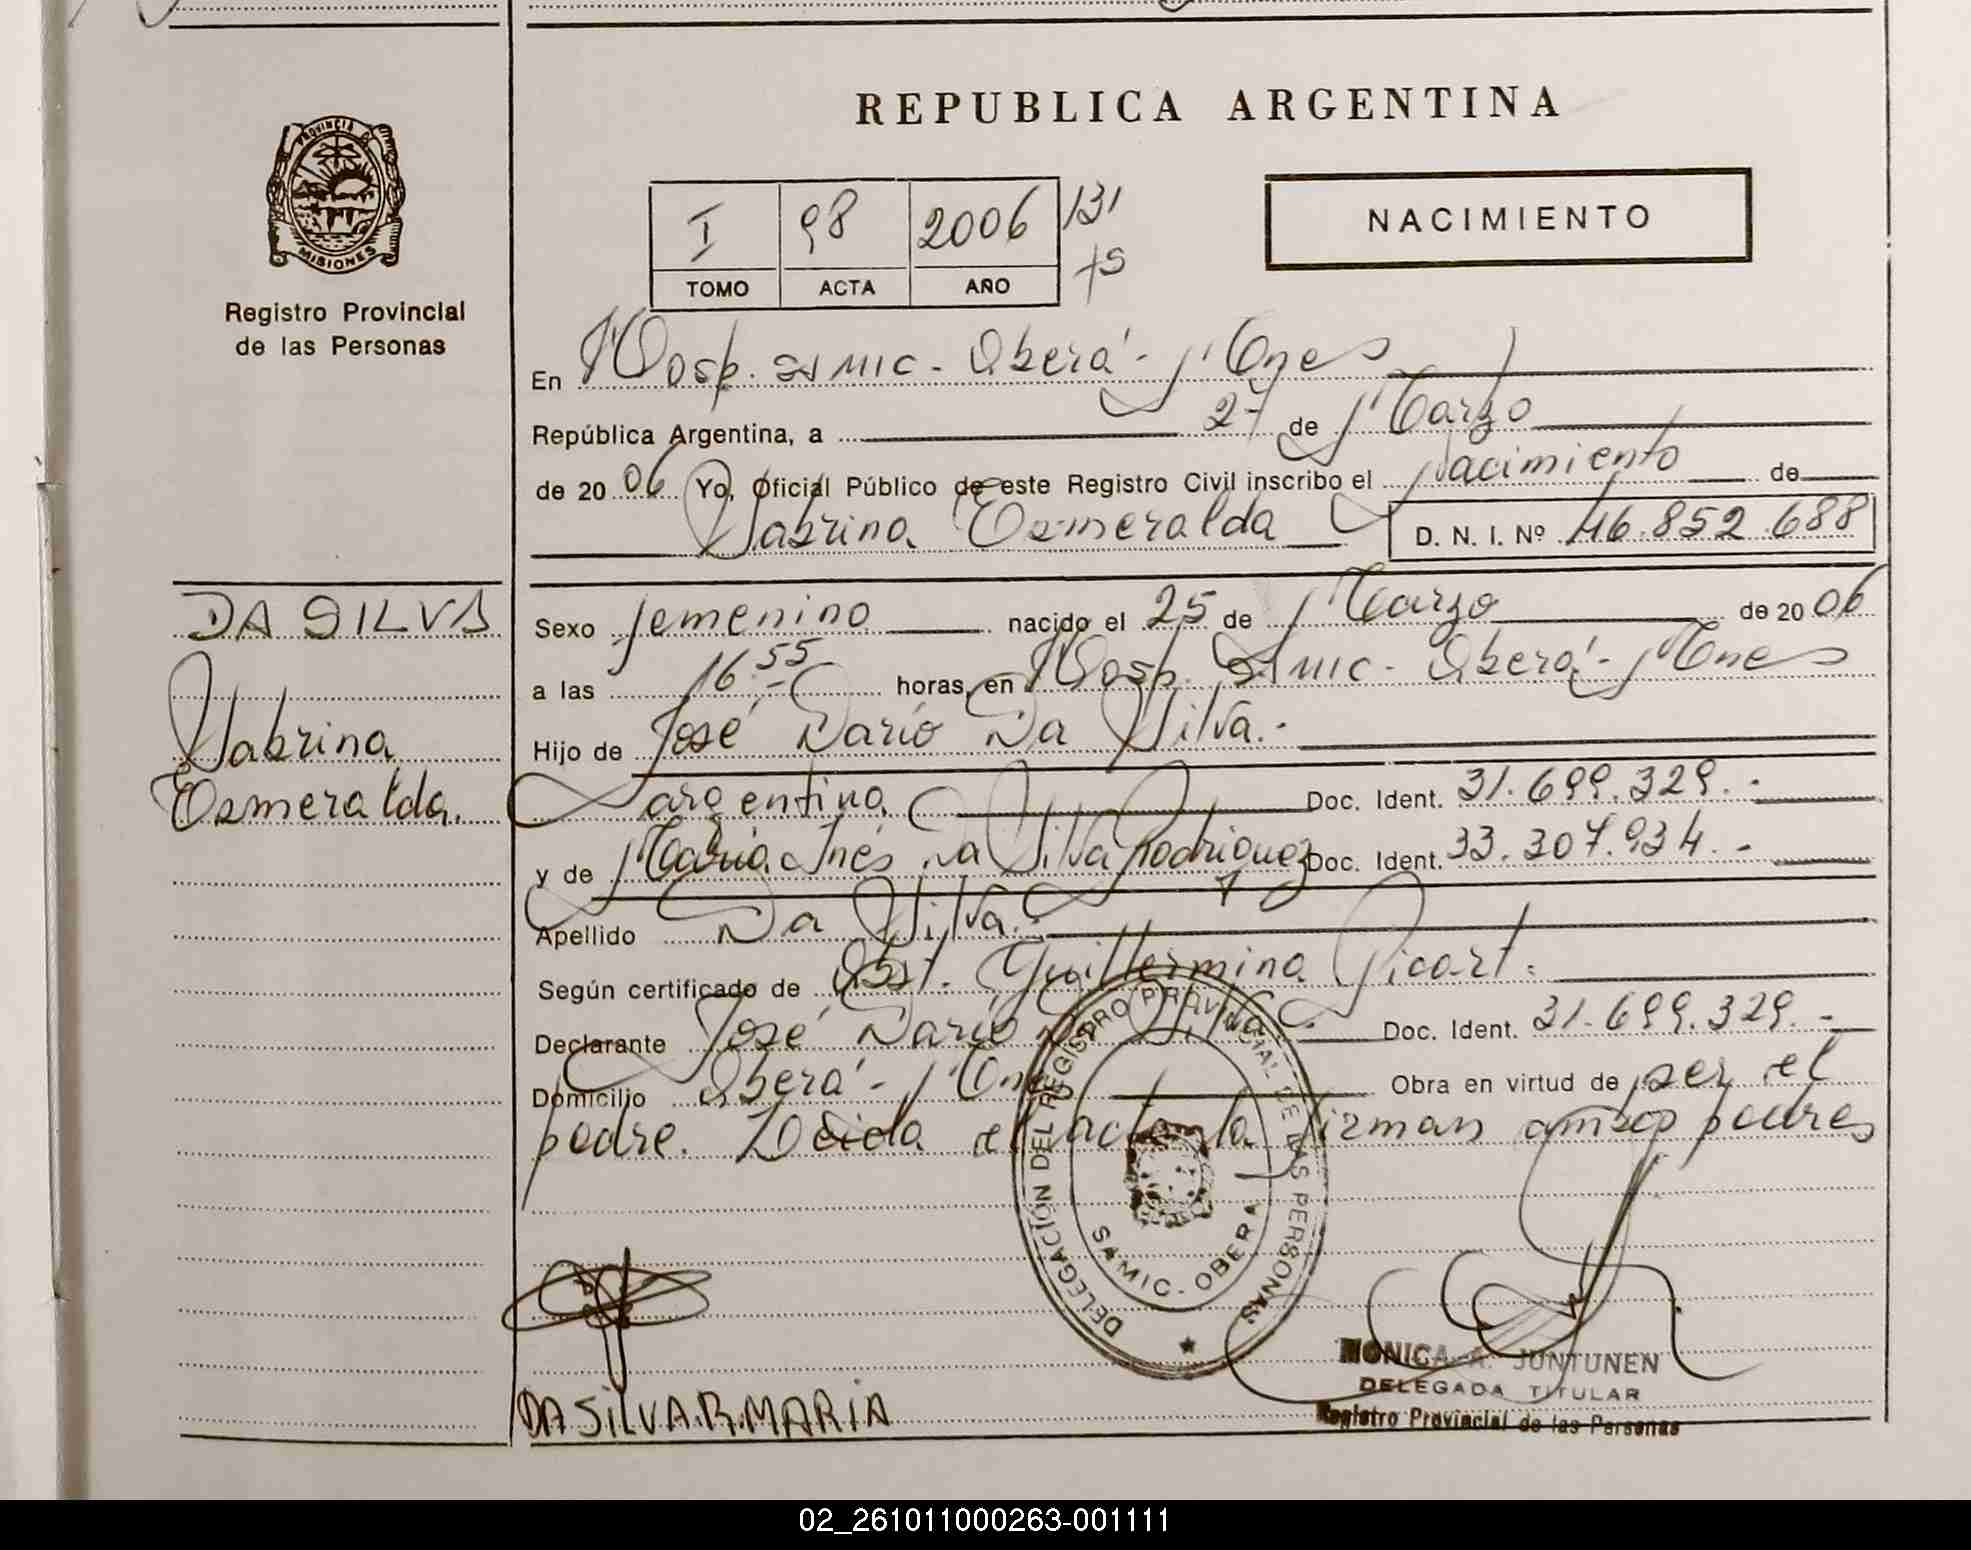 REPUBLICA ARGENTINA
PROVINCIA DE
MISIONES
Registro Provincial
de las Personas
I 98 2006 131
TOMO ACTA AÑO
NACIMIENTO
En Hosp. SAMIC - Oberá - Mnes
República Argentina, a 27 de Marzo
de 2006 Yo, Oficial Público de este Registro Civil inscribo el Nacimiento de
Sabrina Esmeralda D. N. I. Nº 46.852.688
DA SILVA
Sabrina
Esmeralda.
Sexo femenino nacido el 25 de Marzo de 2006
a las 16.55 horas, en Hosp. SAMIC - Oberá - Mnes
Hijo de José Dario Da Silva.-
argentino Doc. Ident. 31.699.329.-
y de Maria Inés Da Silva Rodriguez Doc. Ident. 33.307.934.-
Apellido Da Silva.-
Según certificado de Obst. Guillermina Picart.
Declarante José Dario Da Silva.- Doc. Ident. 31.699.329.-
Domicilio Oberá - Mnes Obra en virtud de ser el
padre. Leida el acta la firman ambos padres
DELEGACIÓN DEL REGISTRO PROVINCIAL DE LAS PERSONAS
SAMIC - OBERA
DA SILVA.R.MARIA
MONICA A. JUNTUNEN
DELEGADA TITULAR
Registro Provincial de las Personas
02_261011000263-001111